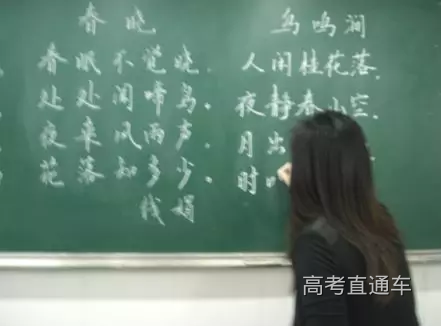 春晓
春眠不觉晓,
处处闻啼鸟。
夜来风雨声,
花落知多少。
娟
鸟鸣涧
人闲桂花落,
夜静春山空。
月出
时
高考直通车